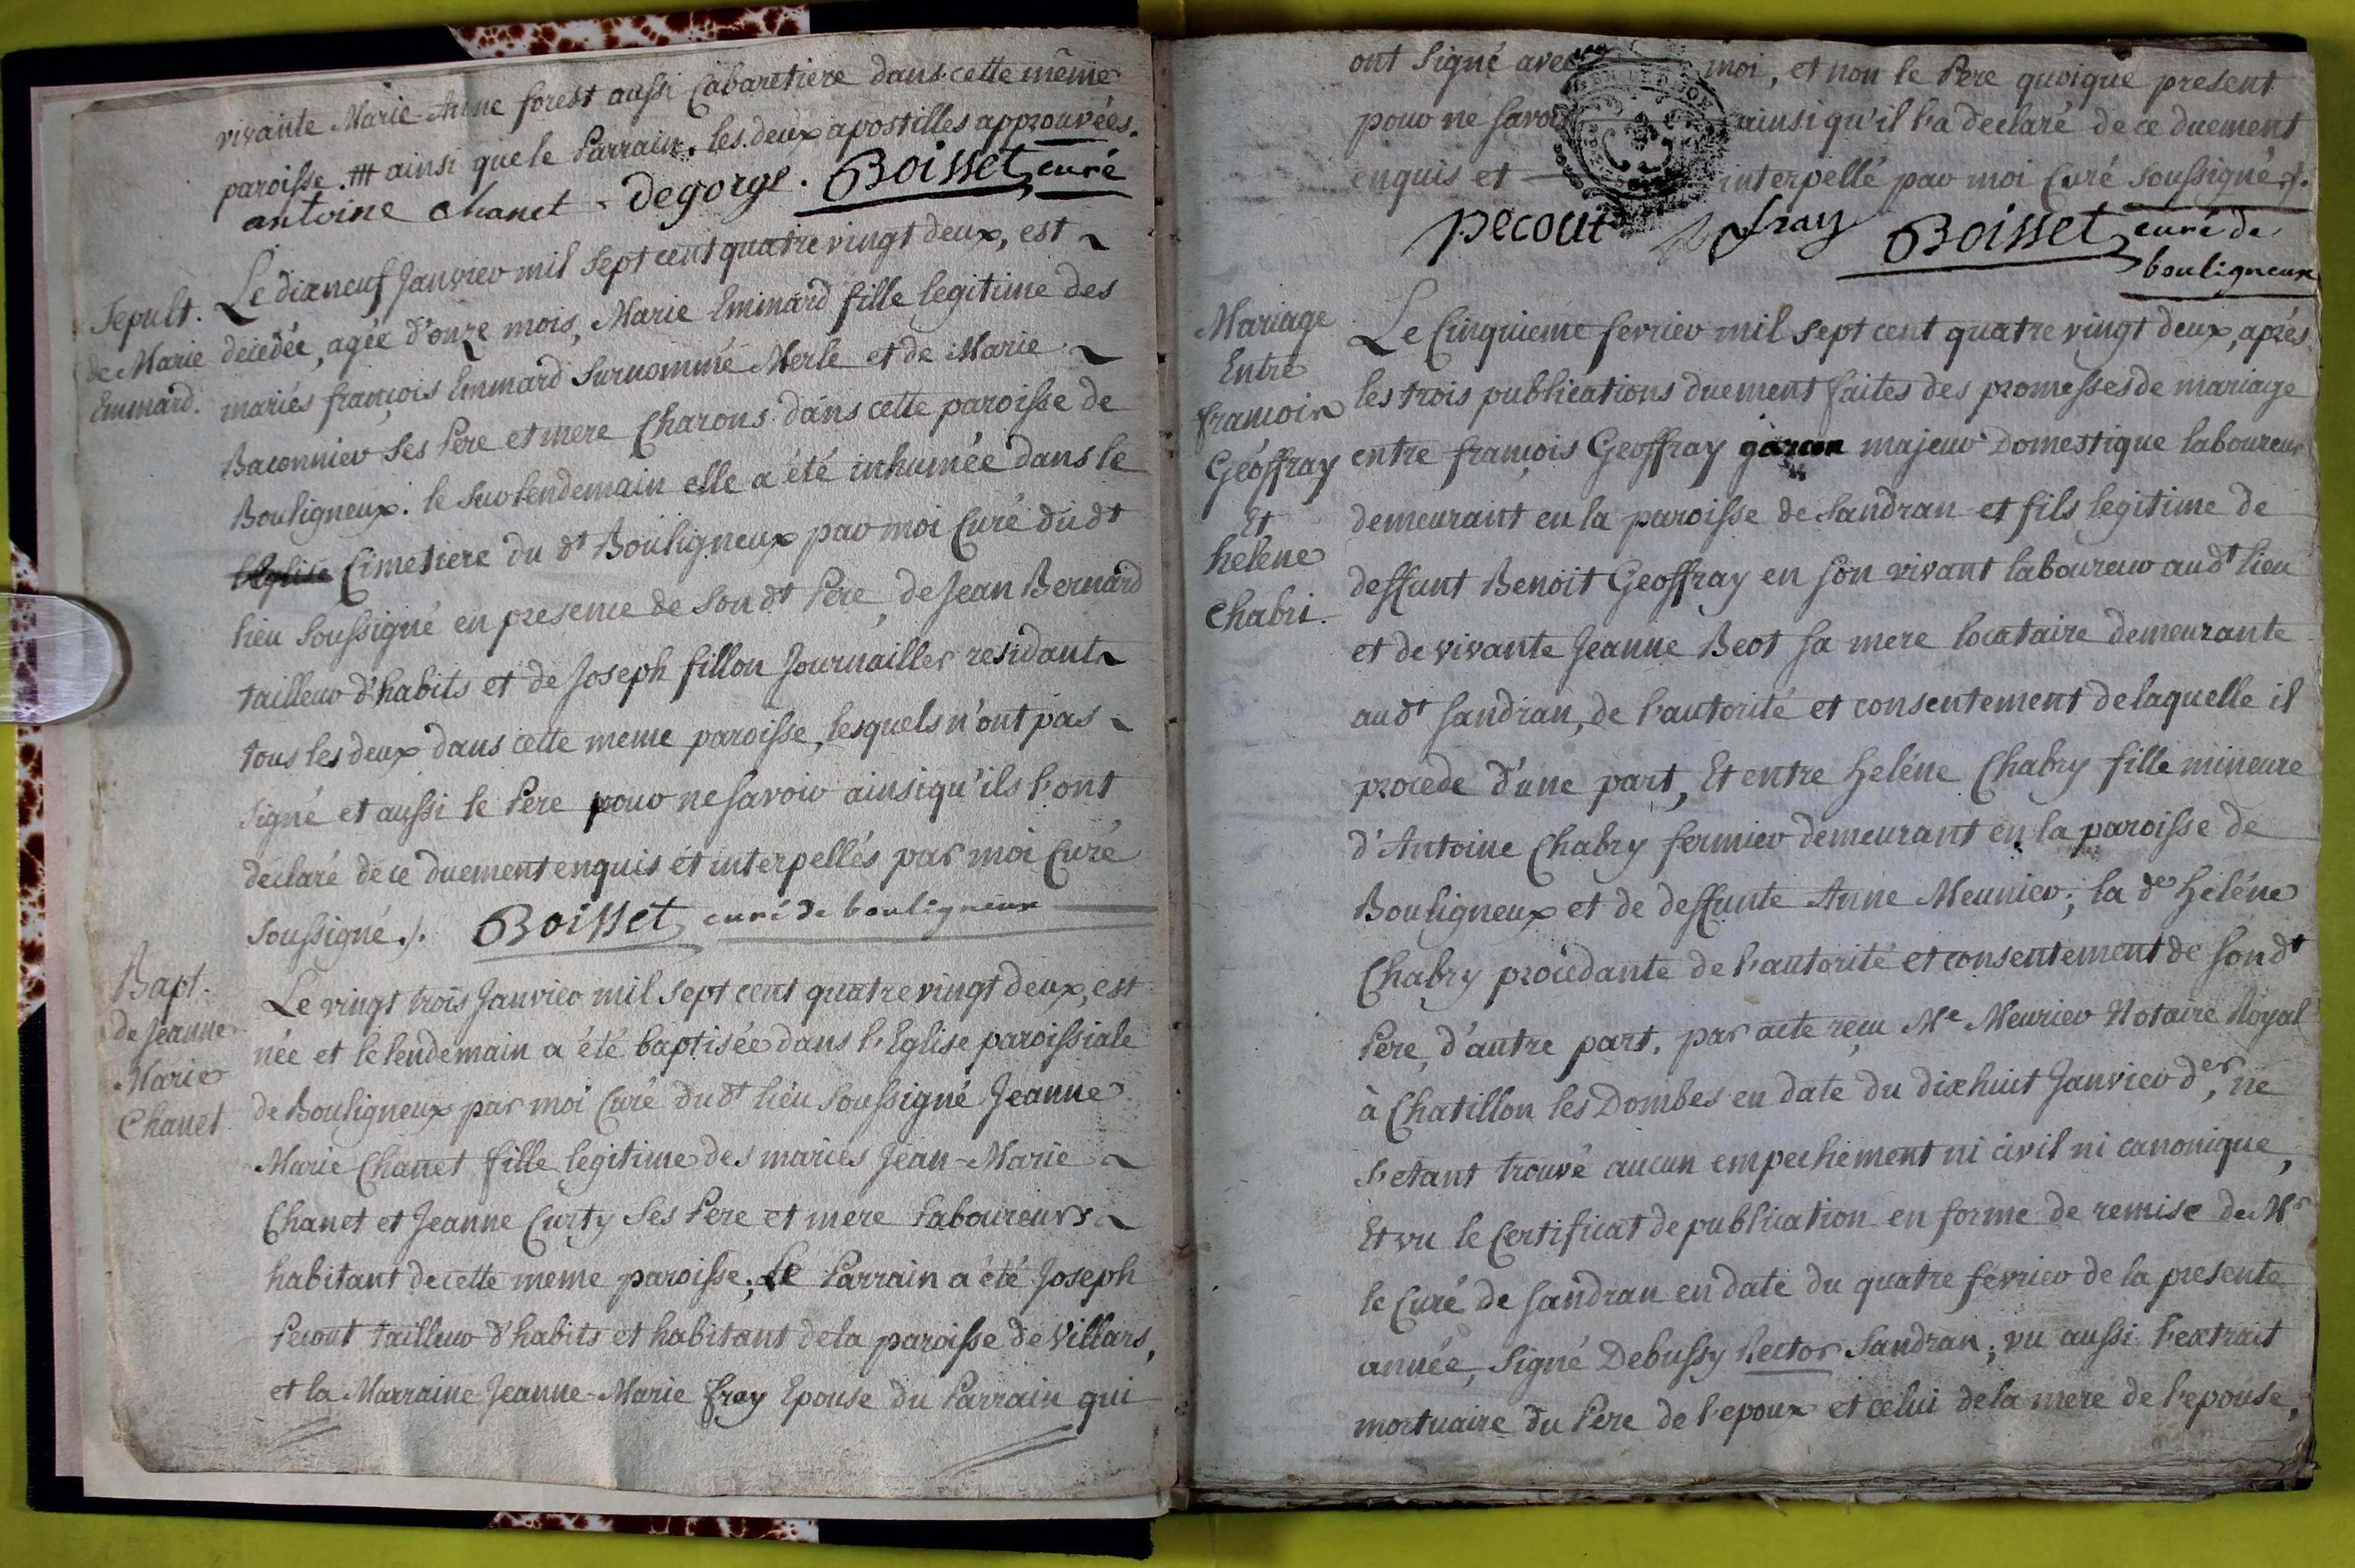 vivante Marie-Anne forest aussi Cabaretiere dans cette même
paroisse. ainsi que le Parrain. les deux apostilles approuvées.
antoine chanet - Degorge. Boisset, curé
Sepult.
de Marie
Emmard.
Le dixneuf Janvier mil sept cent quatre vingt deux, est
decedée, agée d'onze mois, Marie Emmard fille legitime des
mariés françois Emmard surnommé Merle et de Marie
Baconnier ses Pere et mere Charons dans cette paroisse de
Bouligneux. le surlendemain elle a été inhumée dans le
l'Eglise Cimetiere du dt Bouligneux par moi Curé dudt
lieu soussigné en presence de son dt Pere, de Jean Bernard
tailleur d'habits et de Joseph fillon Journailler residants
tous les deux dans cette meme paroisse, lesquels n'ont pas
signé et aussi le Pere pour ne savoir ainsi qu'ils l'ont
declaré de ce duement enquis et interpellés par moi Curé
soussigné./. Boisset, curé de bouligneux
Bapt.
de Jeanne
Marie
Chanet
Le vingt trois Janvier mil sept cent quatre vingt deux, est
née et le lendemain a été baptisée dans l'Eglise paroissiale
de Bouligneux par moi Curé dudt lieu soussigné Jeanne
Marie Chanet fille legitime des mariés Jean-Marie
Chanet et Jeanne Curty ses Pere et mere Laboureurs
habitant de cette meme paroisse; Le Parrain a été Joseph
Pecout tailleur d'habits et habitant de la paroisse de Villars,
et la Marraine Jeanne-Marie fray Epouse du Parrain qui
ont signé avec moi, et non le Pere quoique present
pour ne savoir ainsi qu'il l'a declaré de ce duement
enquis et interpellé par moi Curé soussigné./.
pecout fray Boisset, curé de
bouligneux
Mariage
Entre
francois
Géoffray
Et
helene
Chabri.
Le Cinquieme fevrier mil sept cent quatre vingt deux, aprés
les trois publications duement faites des promesses de mariage
entre françois Geoffray garcon majeur Domestique laboureur
demeurant en la paroisse de Sandran et fils legitime de
deffunt Benoit Geoffray en son vivant laboureur audt lieu
et de vivante Jeanne Beot sa mere locataire demeurante
audt Sandran, de l'autorité et consentement de laquelle il
procede d'une part, Et entre Heléne Chabry fille mineure
d'Antoine Chabry fermier demeurant en la paroisse de
Bouligneux et de deffunte Anne Meunier; la de Heléne
Chabry procedante de l'autorité et consentement de son dt
Pere, d'autre part, par acte reçu Me Meurier Notaire Royal
à Chatillon les Dombes en date du dixhuit Janvier der, ne
s'etant trouvé aucun empechement ni civil ni canonique,
Et vu le Certificat de publication en forme de remise de Mr
le Curé de Sandran en date du quatre fevrier de la presente
année, signé Debussy Rector Sandran; vu aussi l'extrait
mortuaire du Pere de l'epoux et celui de la mere de l'epouse,